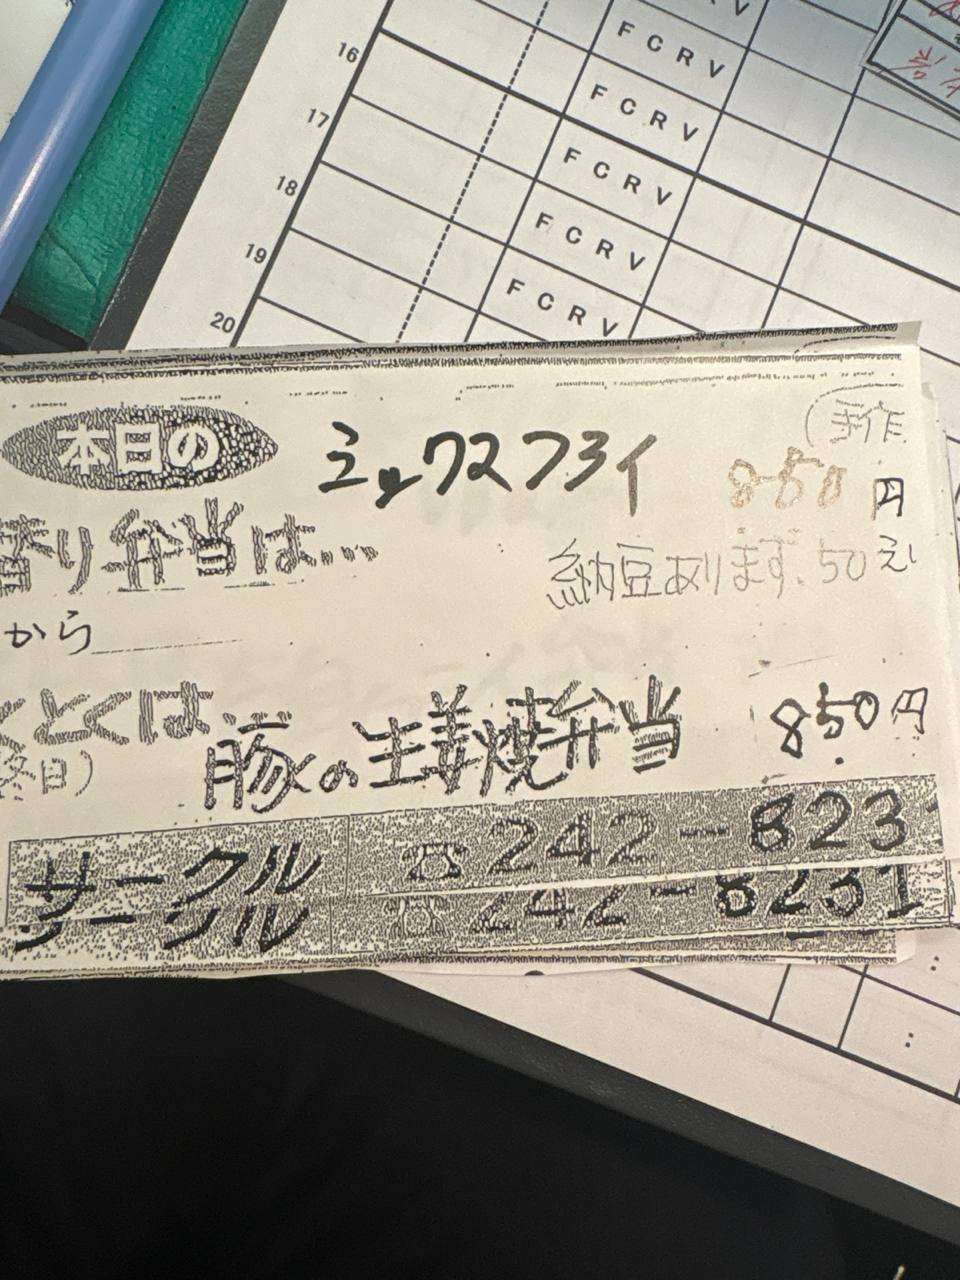 F C R V
16
F C R V
17
F C R V
18
F C R V
19
F C R V
20
手作
本日の ミックスフライ 850円
り弁当は…
納豆あります.50えん
から
くとくは
終日)
豚の生姜焼弁当 850円
サークル ☎242-823
サークル ☎242-8231